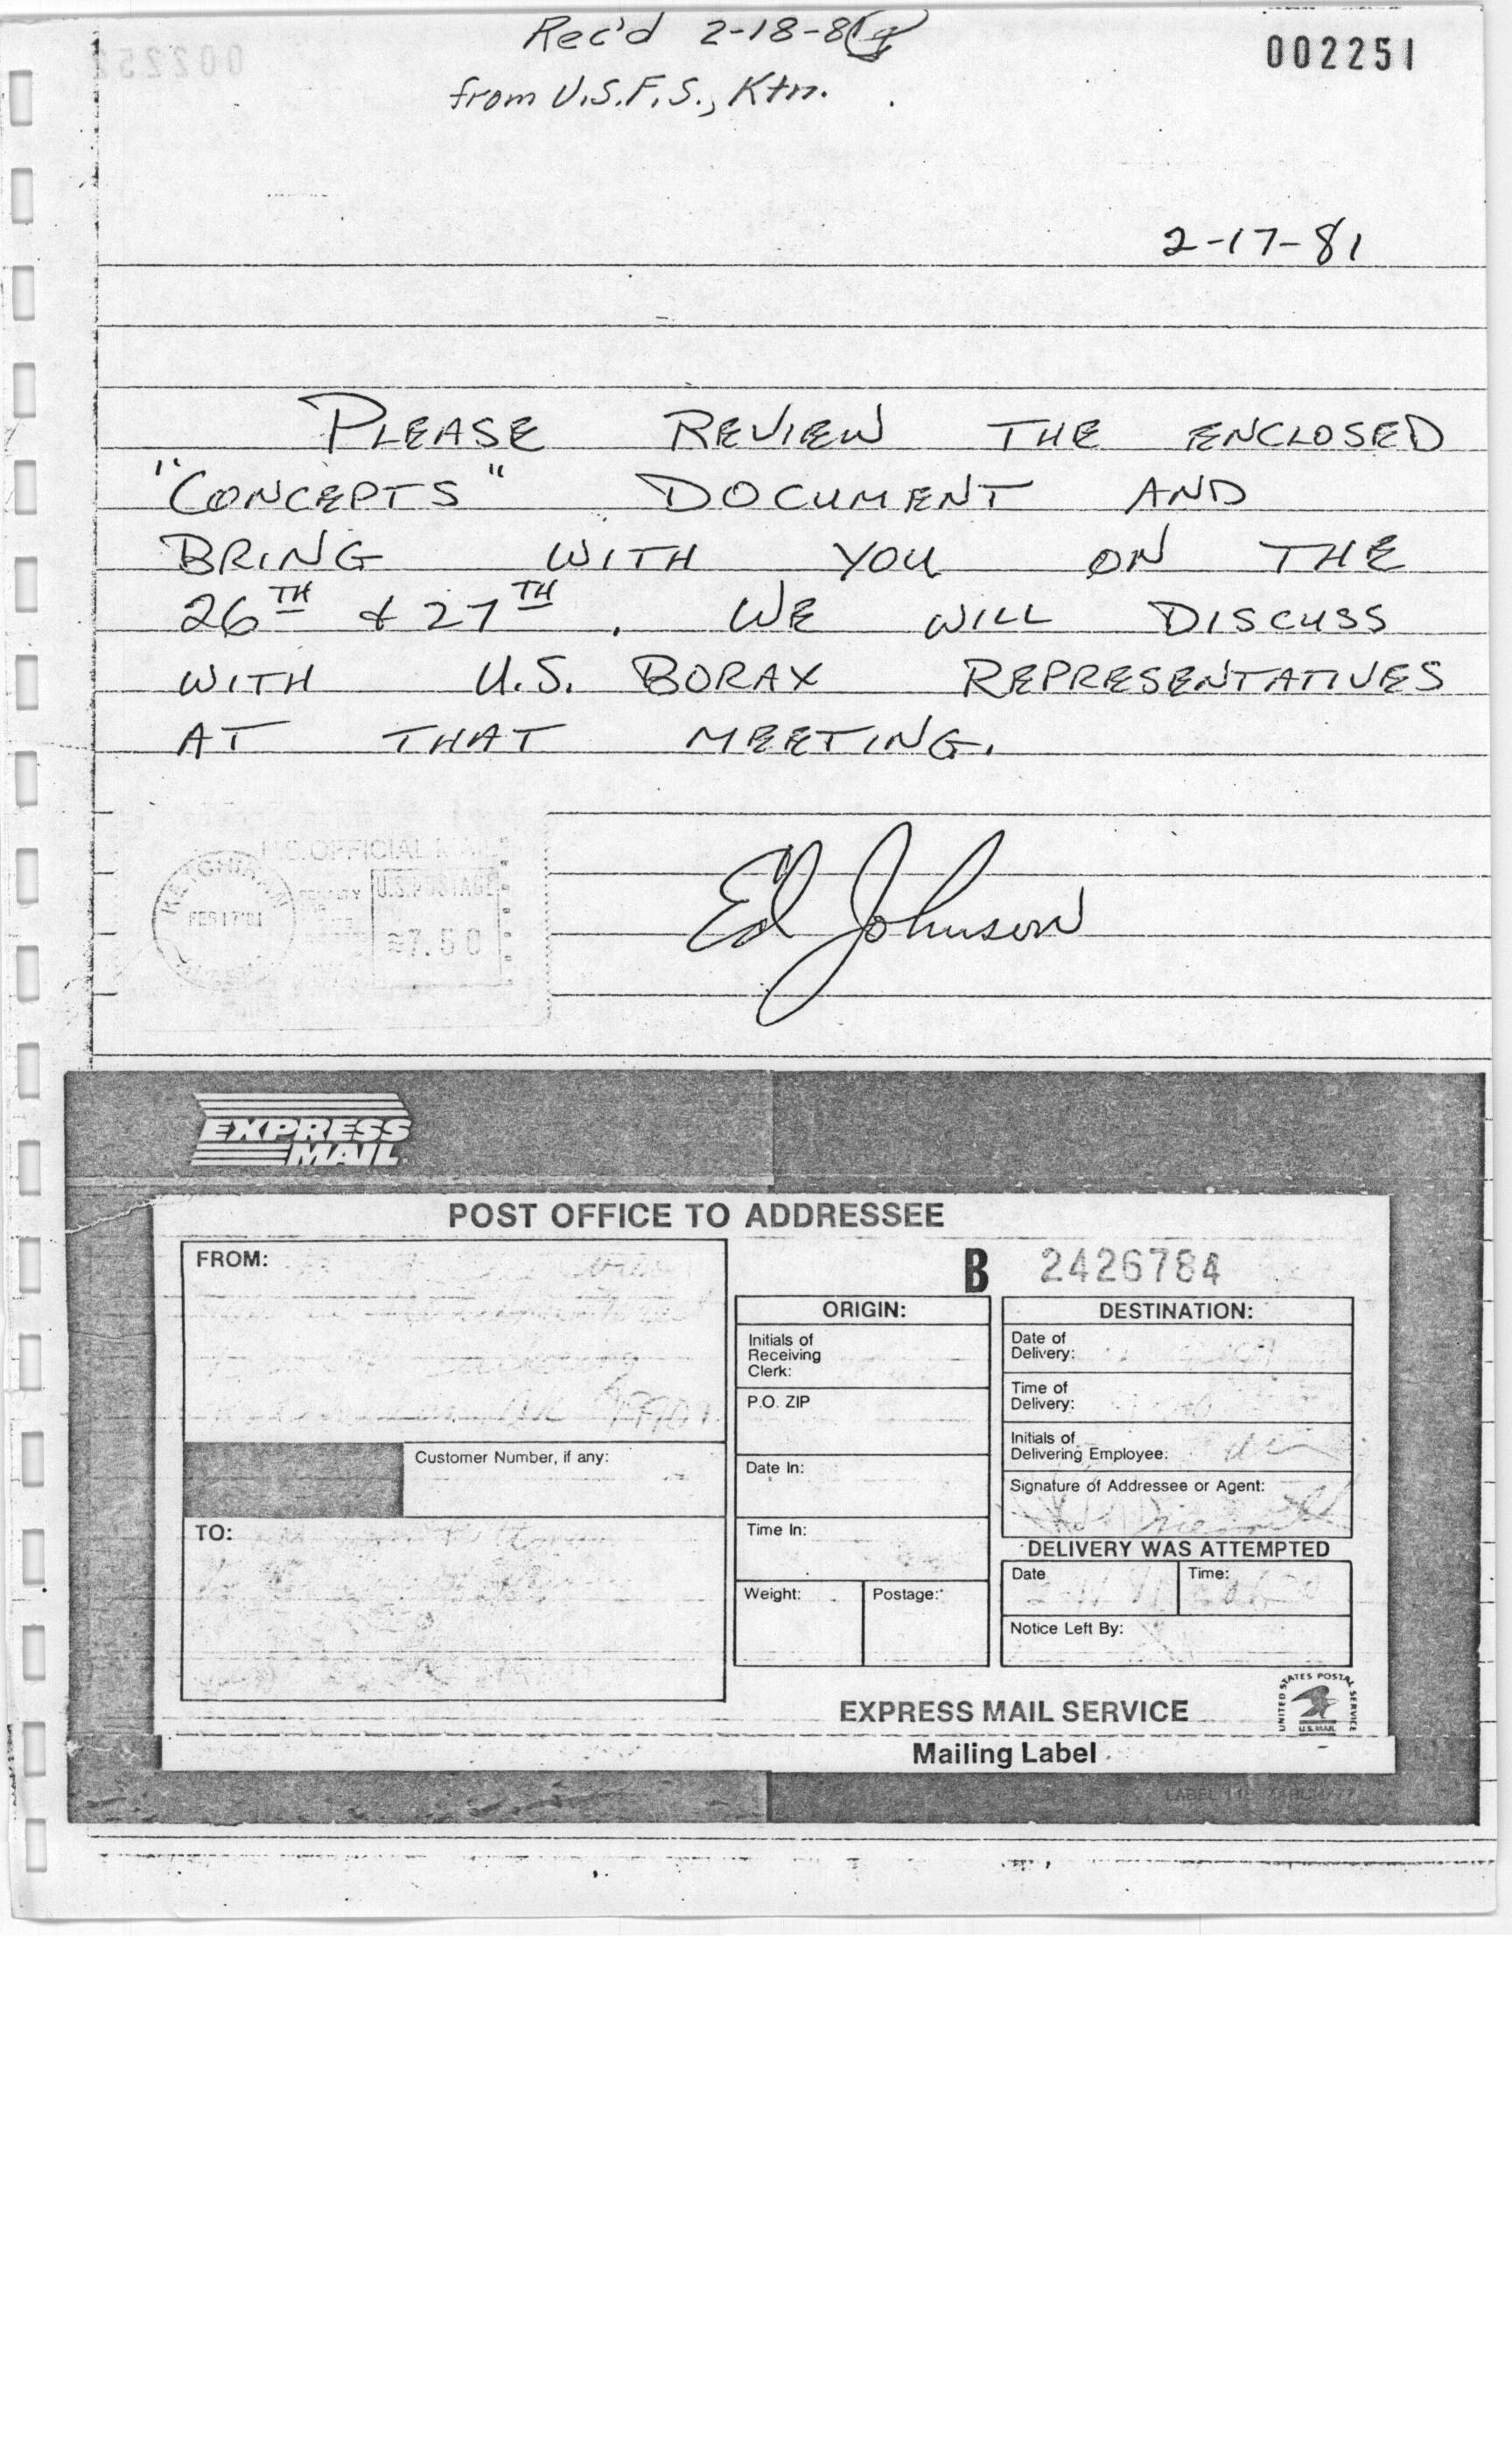 Rec'd 2-18-81
002251
from U.S.F.S., Ktn.
2-17-81
PLEASE REVIEW THE ENCLOSED
"CONCEPTS" DOCUMENT AND
BRING WITH YOU ON THE
26TH & 27TH. WE WILL DISCUSS
WITH U.S. BORAX REPRESENTATIVES
AT THAT MEETING.
U.S. OFFICIAL MAIL
KETCHIKAN
FEB 17 '81
U.S. POSTAGE
7.50
Ed Johnson
EXPRESS
MAIL
POST OFFICE TO ADDRESSEE
FROM:
B 2426784
ORIGIN:
DESTINATION:
Initials of
Receiving
Clerk:
Date of
Delivery:
P.O. ZIP
Time of
Delivery:
Initials of
Delivering Employee:
Customer Number, if any:
Date In:
Signature of Addressee or Agent:
TO:
Time In:
DELIVERY WAS ATTEMPTED
Date
Time:
Weight:
Postage:
Notice Left By:
EXPRESS MAIL SERVICE
UNITED STATES POSTAL SERVICE
U.S. MAIL
Mailing Label